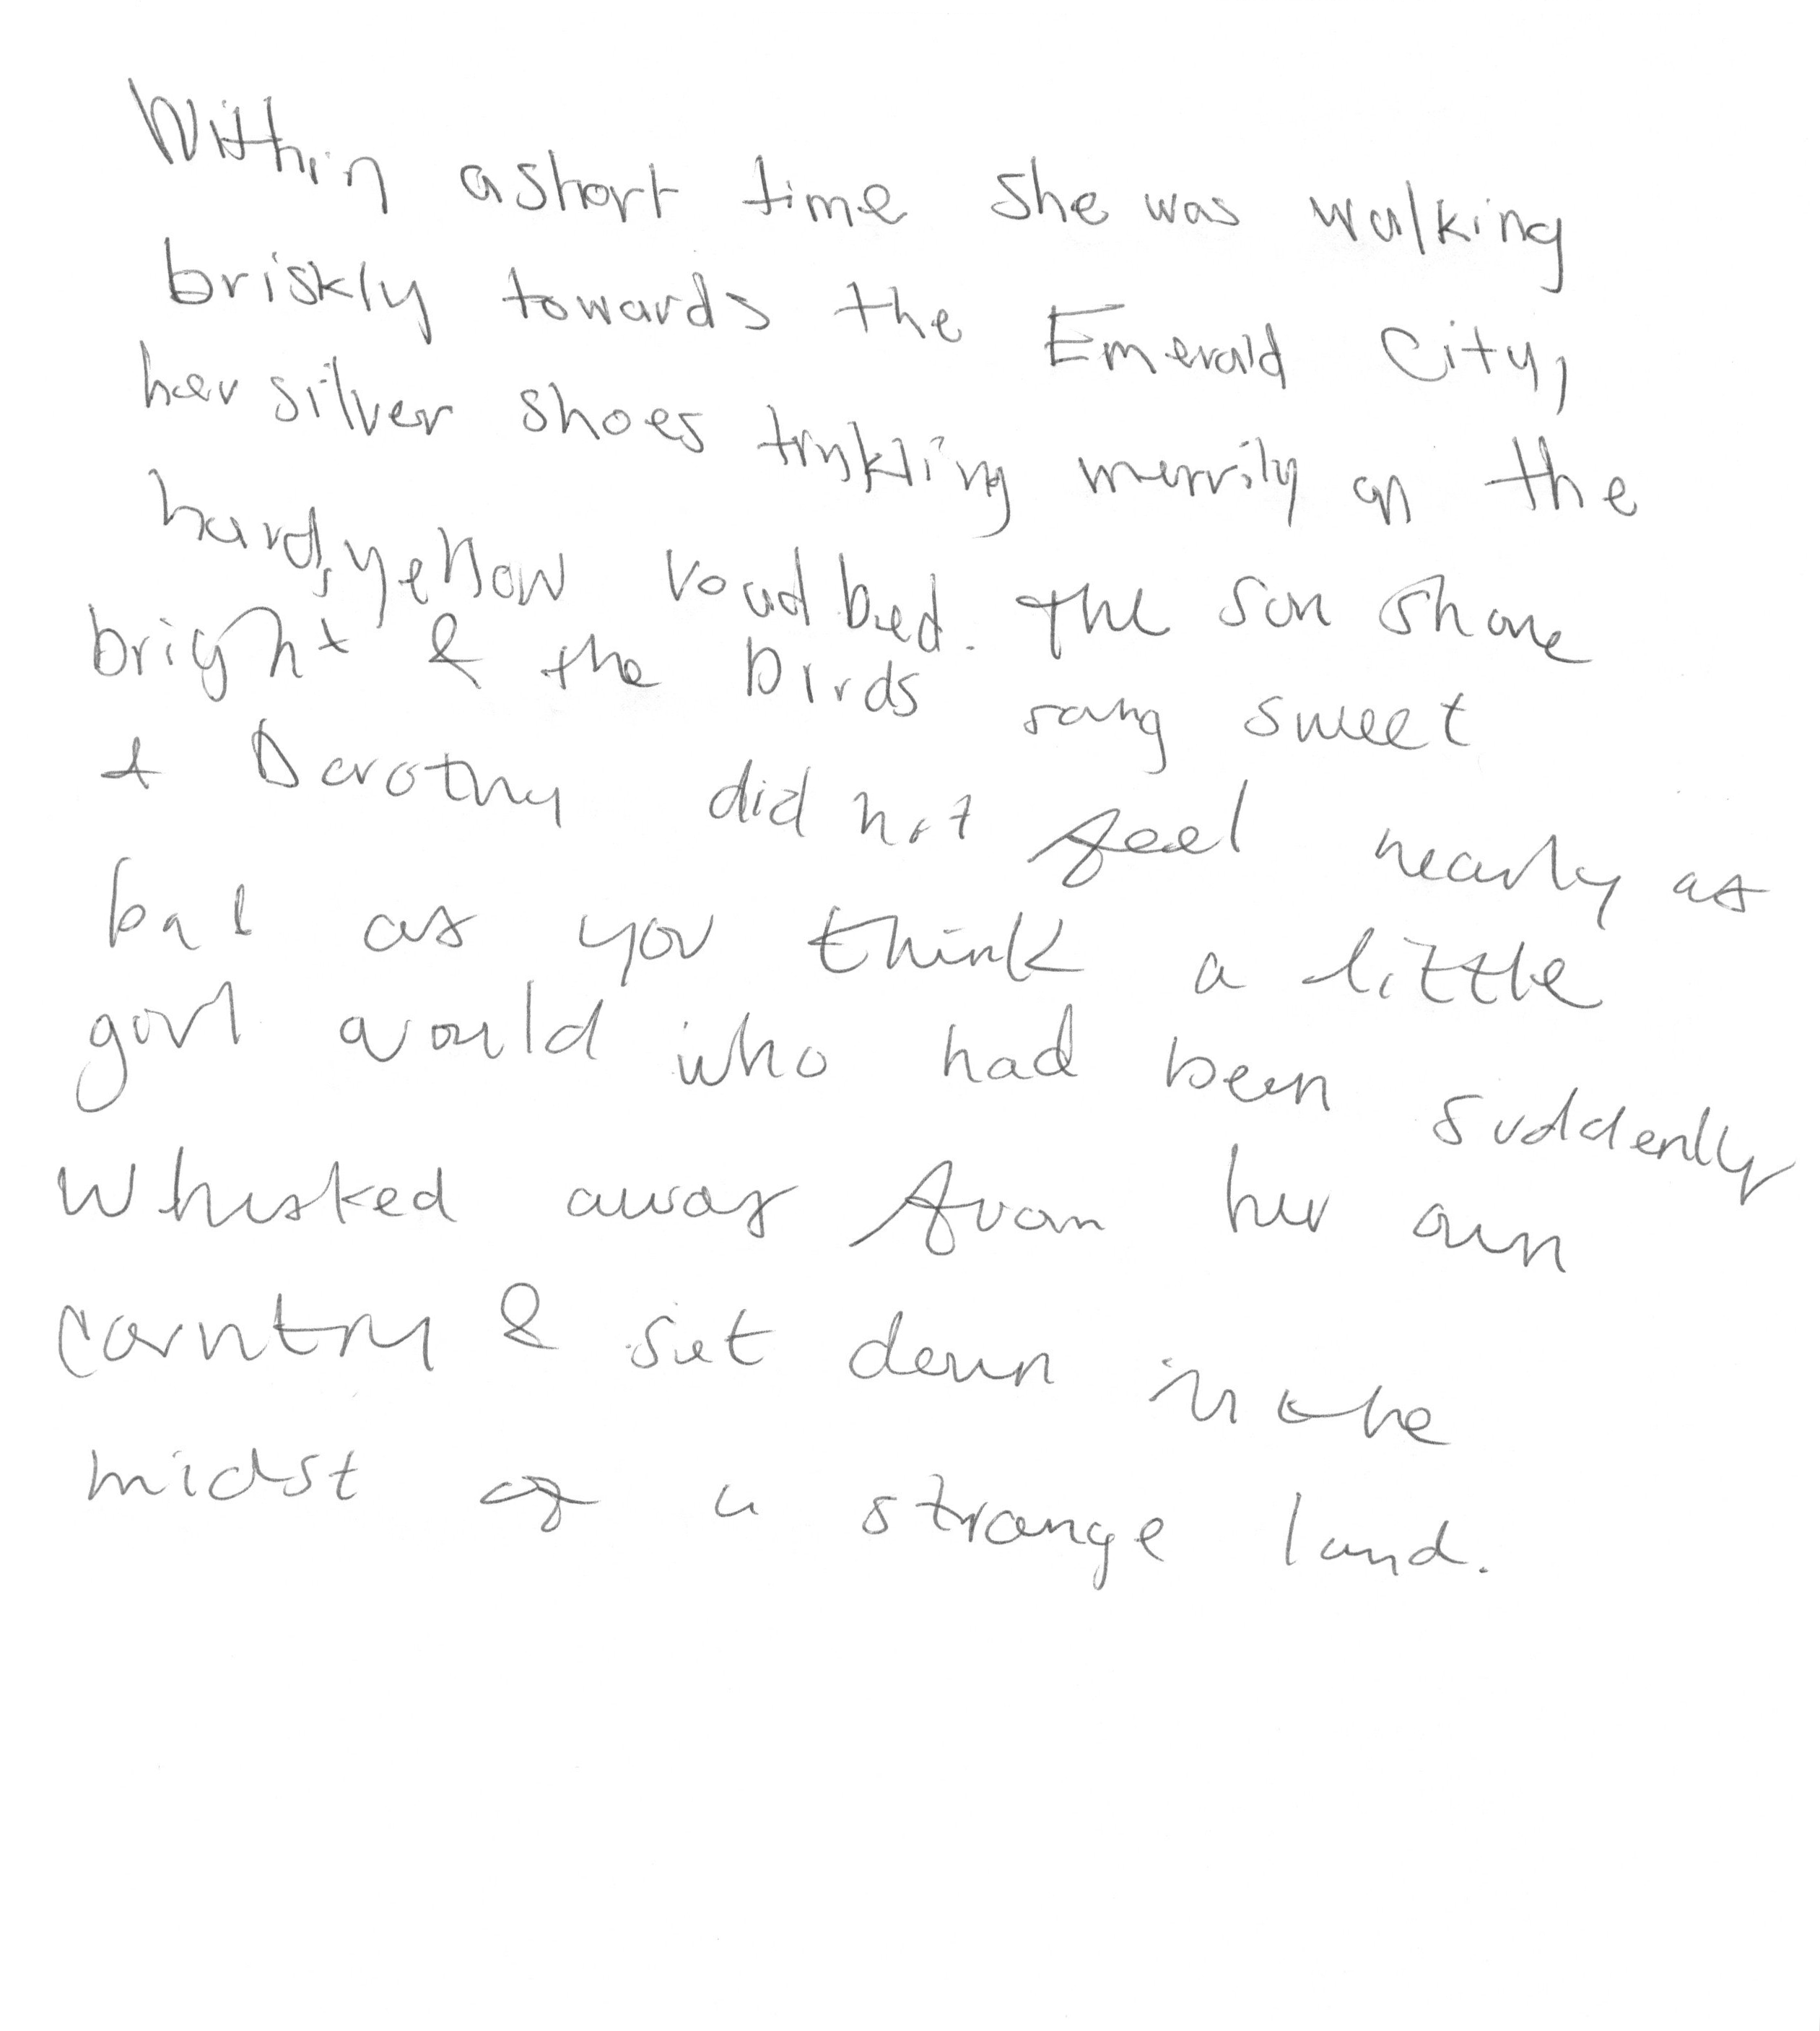 Within a short time she was walking
briskly towards the Emerald City,
her silver shoes tinkling merrily on the
hard, yellow road bed. The sun shone
bright & the birds sang sweet
& Dorothy did not feel nearly as
bad as you think a little
girl would who had been suddenly
whisked away from her own
country & set down in the
midst of a strange land.